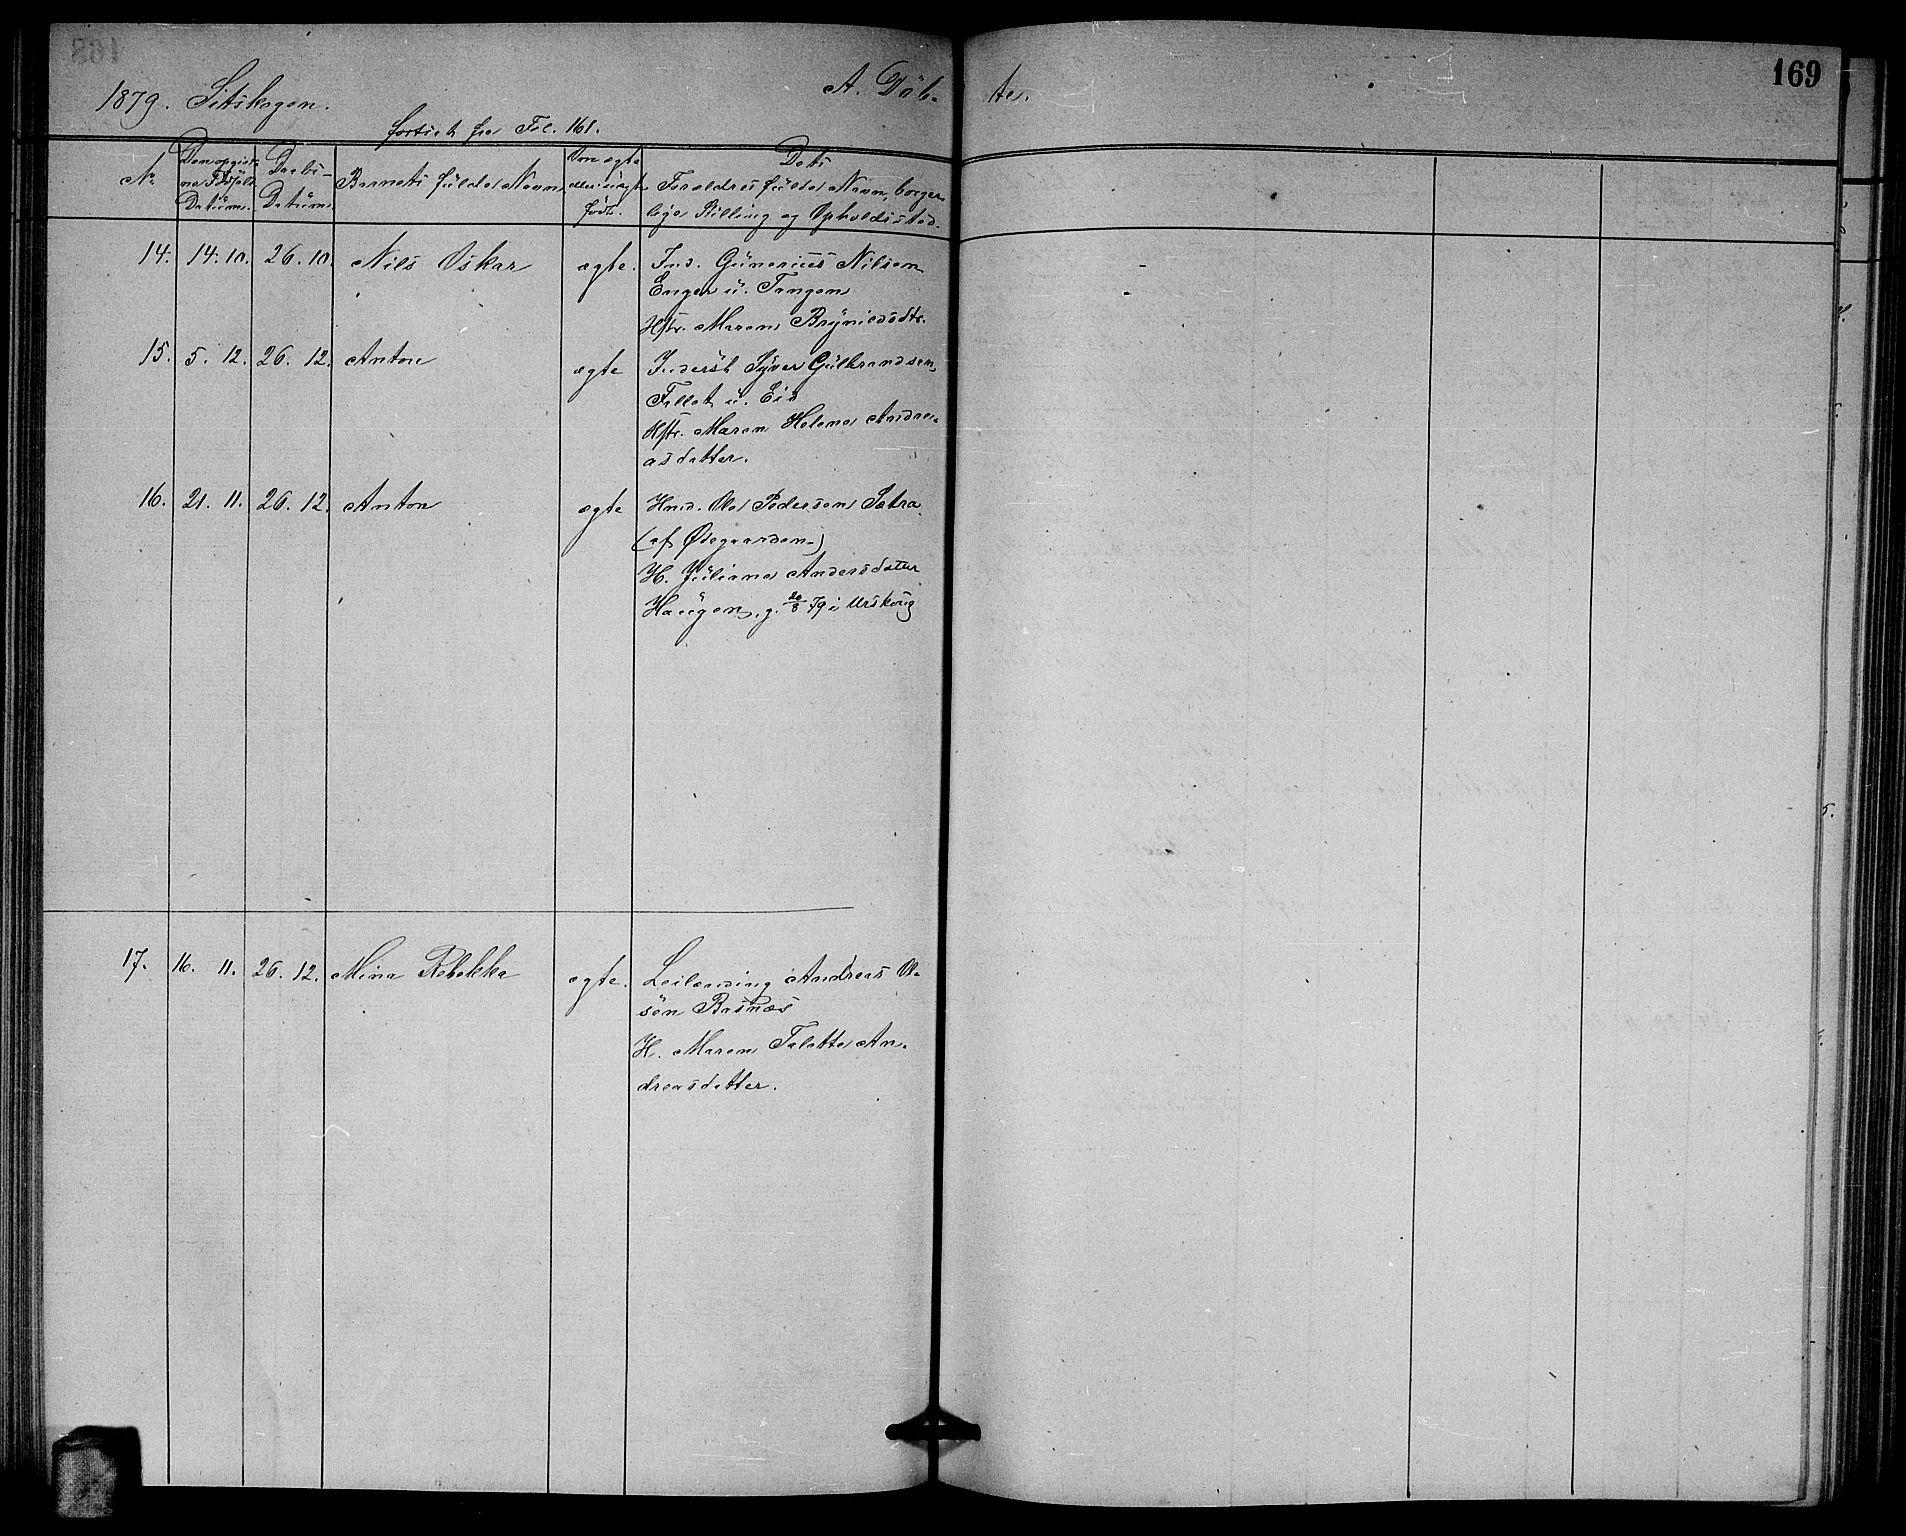 169
1879. Sitskogen. A. Döb- te.
fortsat fra Fol. 161.
No
Den opgivne Födsels Datum.
Daabs-Datum.
Barnets fulde Navn
Om ægte eller uægte födt.
Dets
Foreldres fulde Navn, borger-
lige Stilling og Opholdssted.
14. 14. 10. 26. 10. Nils Oskar ægte. Ind. Gunerius Nilsen
Enger u. Tangen
Hstr. Maren Brynildsdtr.
15. 5. 12. 26. 12. Anton ægte Inderst Syver Gulbrandsen
Fallet u. Eid
Kstr. Maren Helene Andre-
asdatter.
16. 21. 11. 26. 12. Anton ægte Hmd. Ole Pedersen Sætra
(af Ødegaarden)
H. Juliane Andersdatter
Haugen, g. 20/8 79 i Urskoug
17. 16. 11. 26. 12. Mina Rebekka ægte. Leilænding Andreas Ol-
sön Basnæs
H. Maren Talette An-
dreasdatter.